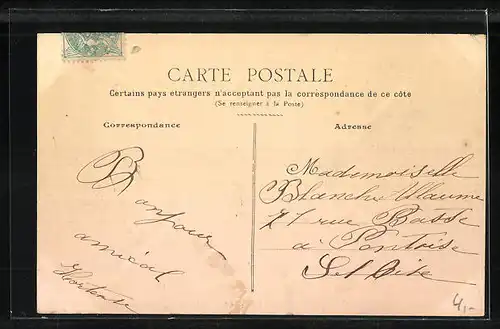 CARTE POSTALE
Certains pays etrangers n'acceptent pas la correspondance de ce côté
(Se renseigner à la Poste)
Correspondance
Adresse
Bonjour
amical
Hortense
Mademoiselle
Blanche
71 rue Basse
à Pontoise
Set Oise
4,-